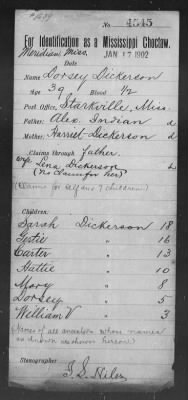 No. 4545
For Identification as a Mississippi Choctaw.
Meridian, Miss. JAN 17 1902
Date
Name Dorsey Dickerson
Age 39 Blood 1/2
Post Office, Starkville, Miss.
Father: Alex. Indian d
Mother: Harriet Dickerson d
Claims through father.
wife Lena Dickerson
(No claim for her)
(Claims for self and 7 children)
Children:
Sarah Dickerson 18
Gertie " 16
Carter " 13
Hattie " 10
Mary " 8
Dorsey " 5
William V " 3
(Names of all ancestors whose names
are known are shown hereon)
Stenographer